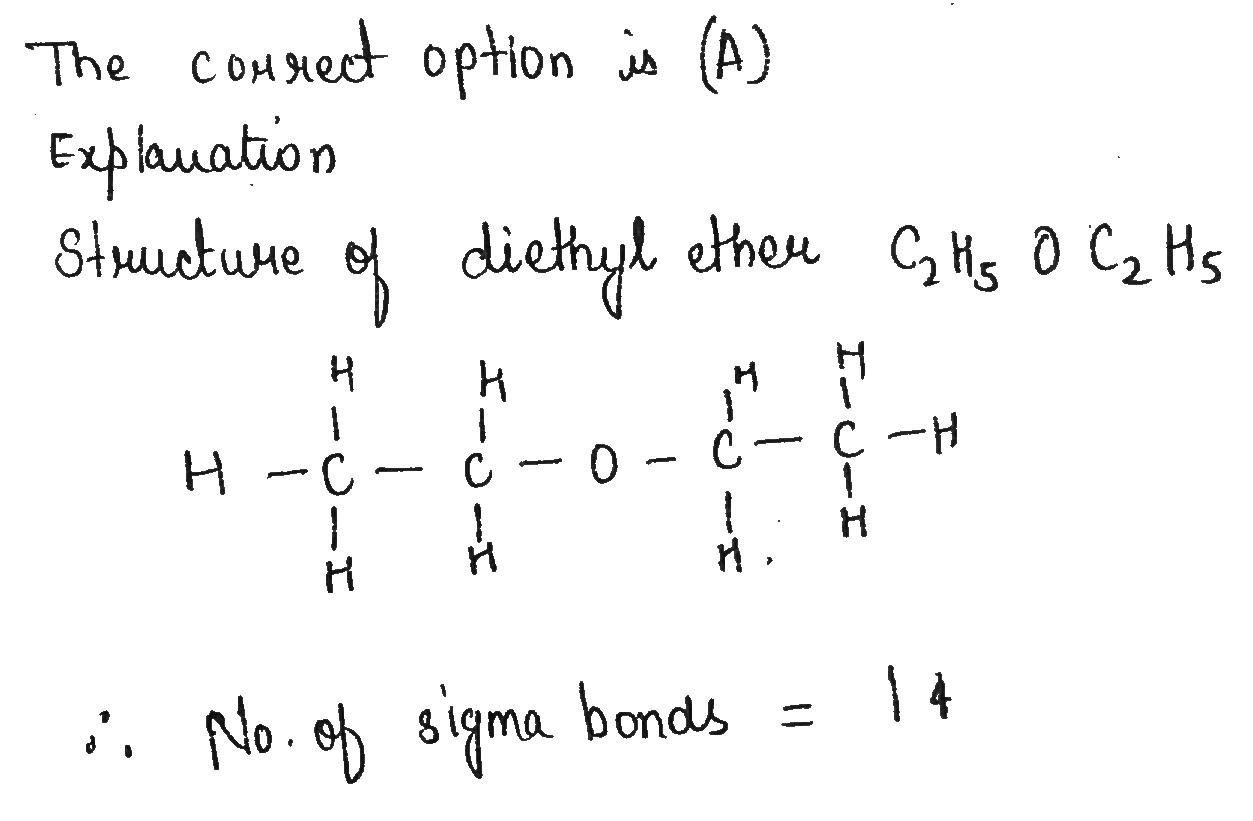 The correct option is (A)
Explanation
Structure of diethyl ether C₂H₅ O C₂H₅
H H H H
H - C - C - O - C - C - H
H H H H
∴ No. of sigma bonds = 14